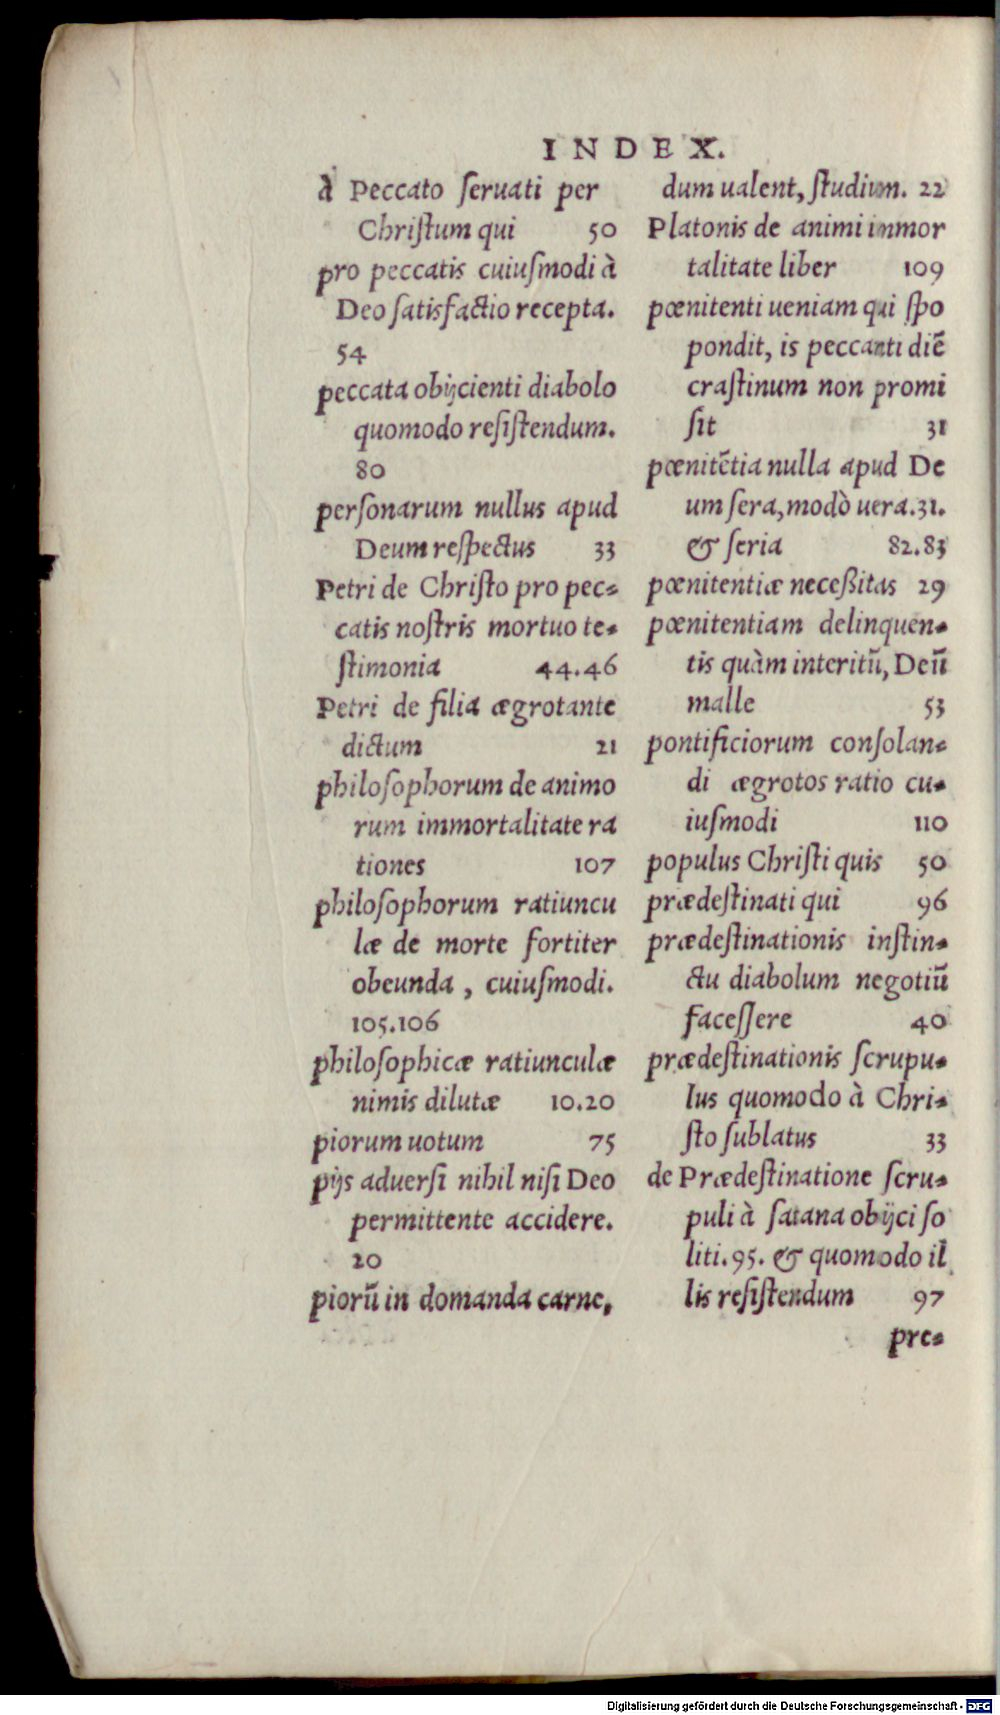 INDEX.
à Peccato ſeruati per
Chriſtum qui 50
pro peccatis cuiuſmodi à
Deo ſatisfactio recepta.
54
peccata obijcienti diabolo
quomodo reſiſtendum.
80
perſonarum nullus apud
Deum reſpectus 33
Petri de Chriſto pro pec-
catis noſtris mortuo te-
ſtimonia 44.46
Petri de filia ægrotante
dictum 21
philoſophorum de animo
rum immortalitate ra
tiones 107
philoſophorum ratiuncu
læ de morte fortiter
obeunda, cuiuſmodi.
105.106
philoſophicæ ratiunculæ
nimis dilutæ 10.20
piorum uotum 75
pijs aduerſi nihil niſi Deo
permittente accidere.
20
piorū in domanda carne,
dum ualent, ſtudium. 22
Platonis de animi immor
talitate liber 109
pœnitenti ueniam qui ſpo
pondit, is peccanti diē
craſtinum non promi
ſit 31
pœnitētia nulla apud De
um ſera, modò uera. 31.
& ſeria 82.83
pœnitentiæ neceßitas 29
pœnitentiam delinquen-
tis quàm interitū, Deū
malle 53
pontificiorum conſolan-
di ægrotos ratio cu-
iuſmodi 110
populus Chriſti quis 50
prædeſtinati qui 96
prædeſtinationis inſtin-
ctu diabolum negotiū
faceſſere 40
prædeſtinationis ſcrupu-
lus quomodo à Chri-
ſto ſublatus 33
de Prædeſtinatione ſcru-
puli à ſatana obijci ſo
liti. 95. & quomodo il
lis reſiſtendum 97
pre-
Digitalisierung gefördert durch die Deutsche Forschungsgemeinschaft - DFG